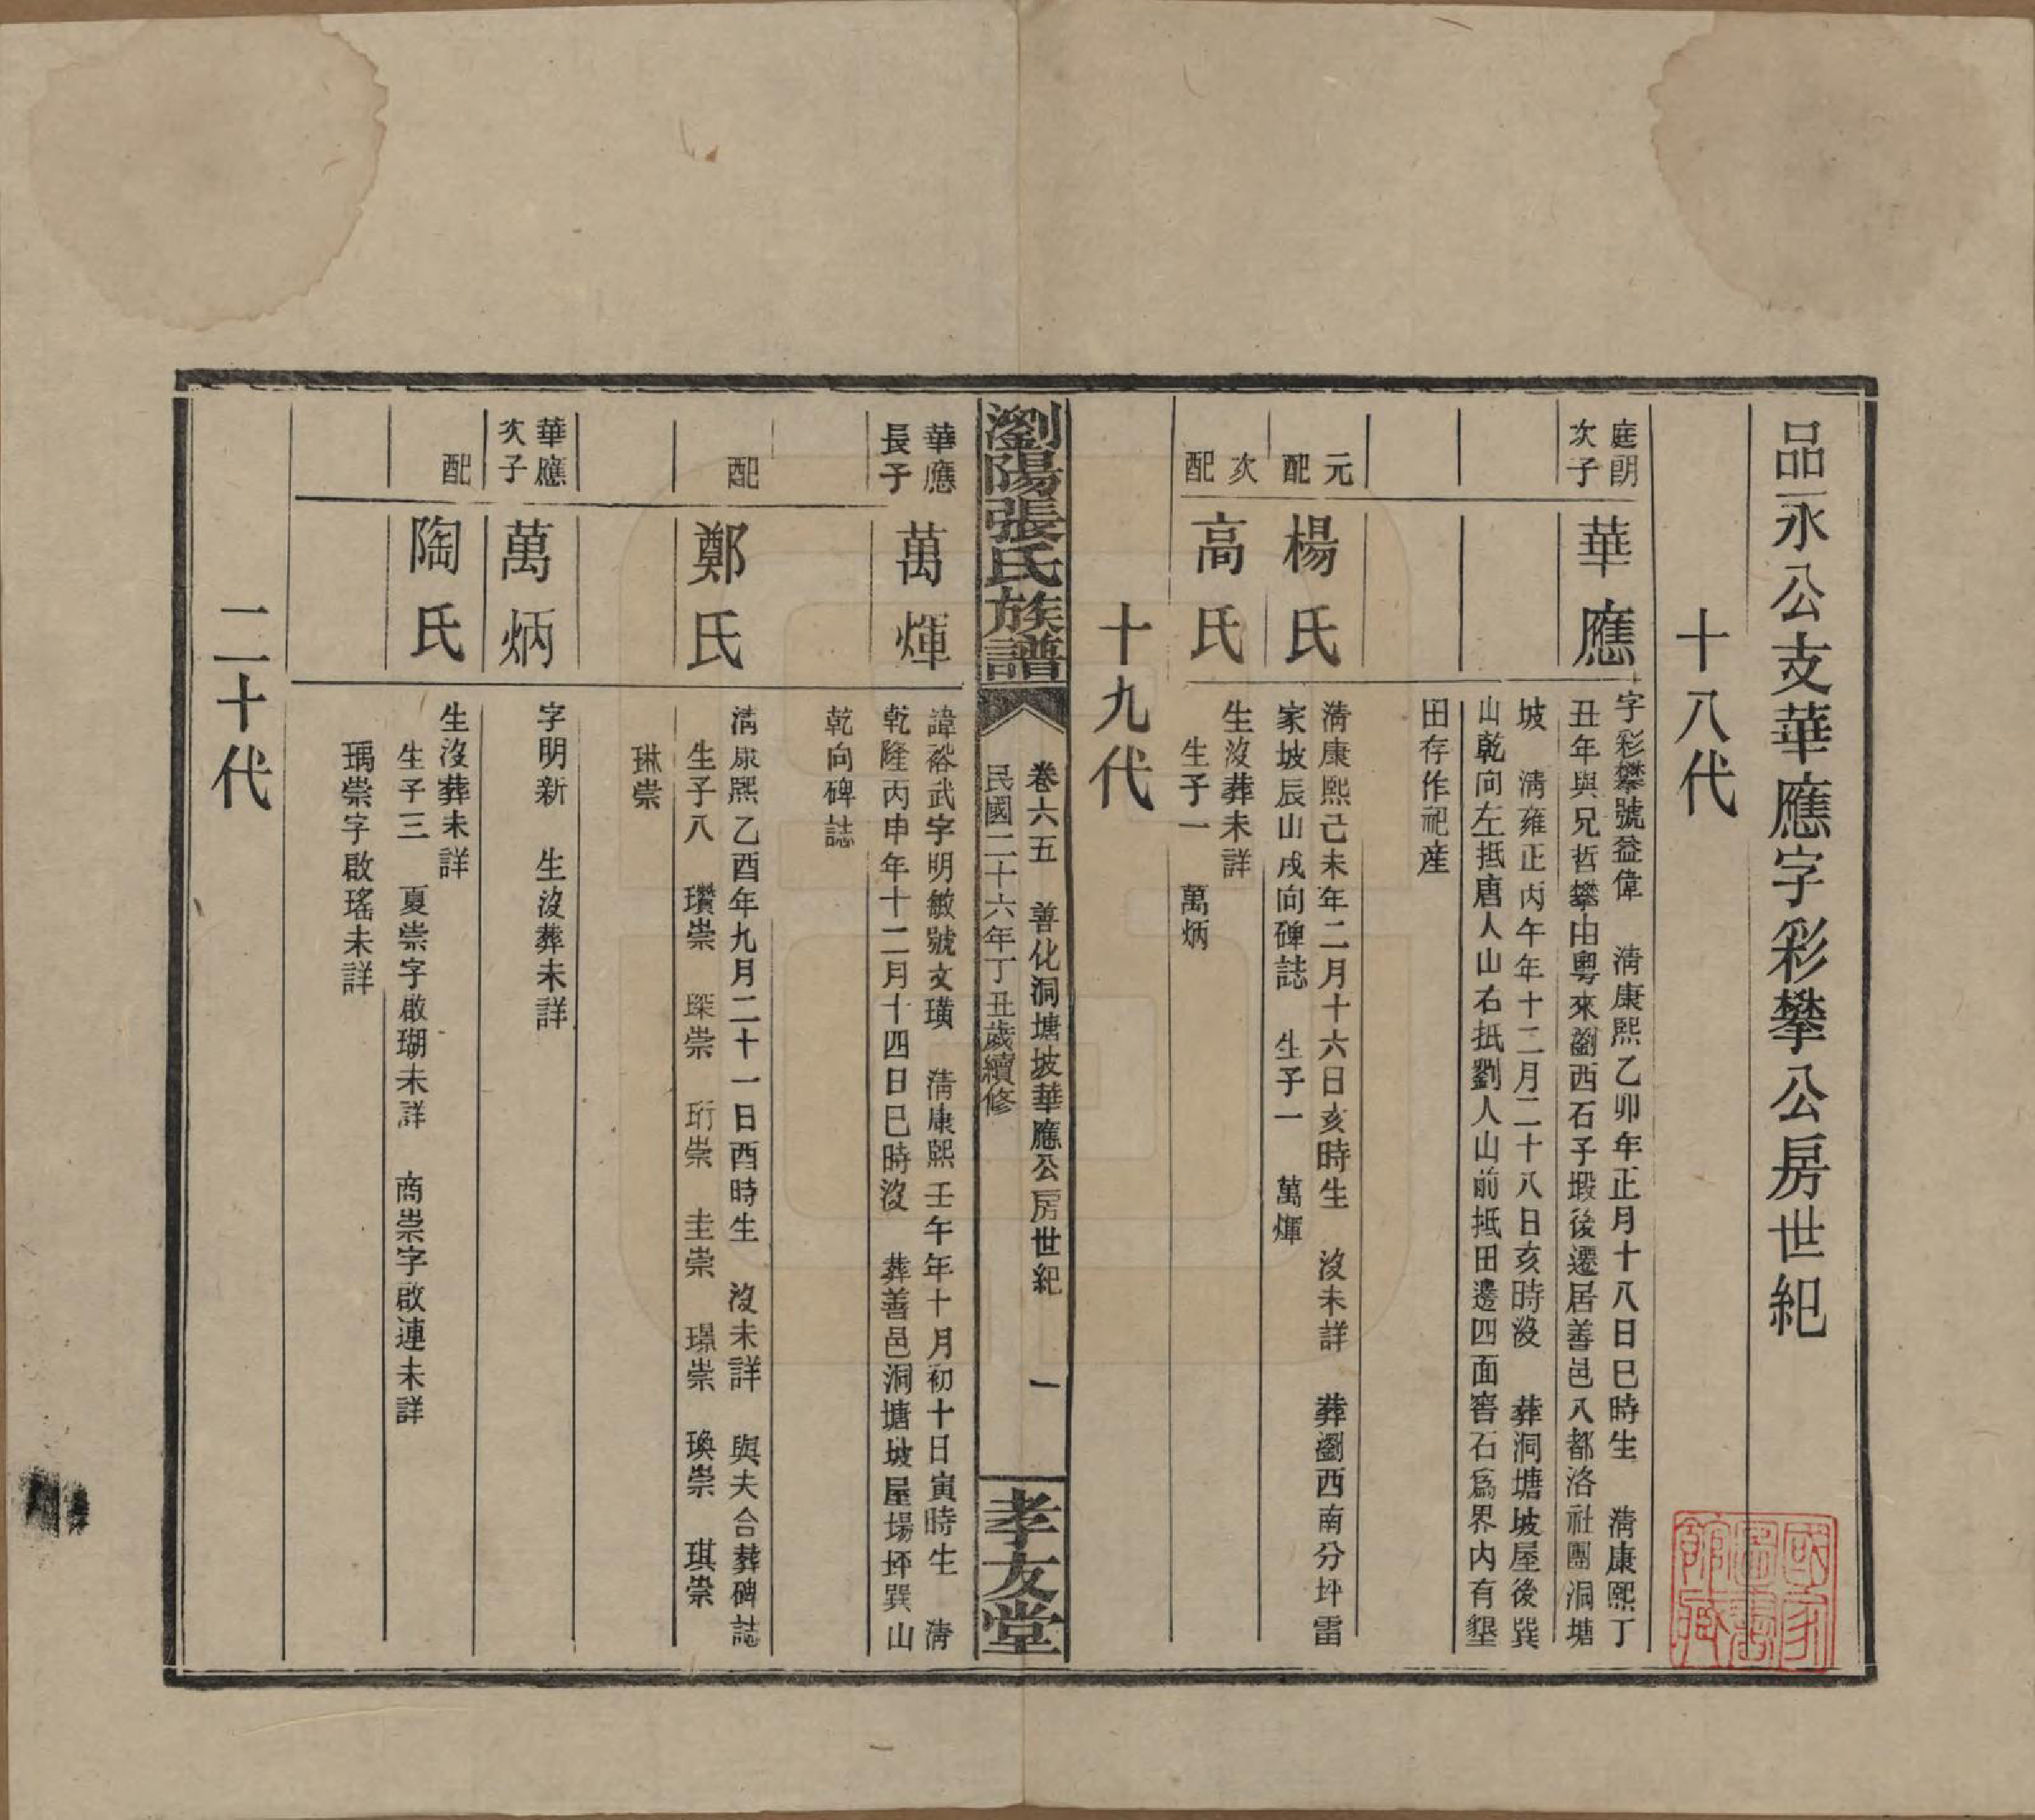 品永公支華應字彩攀公房世紀
十八代
庭朗
次子
華應
字彩攀號益偉　清康熙乙卯年正月十八日巳時生　清康熙丁
丑年與兄哲攀由粵來瀏西石子塅後遷居善邑八都洛社團洞塘
坡　清雍正丙午年十二月二十八日亥時沒　葬洞塘坡屋後巽
山乾向左抵唐人山右抵劉人山前抵田邊四面窖石爲界內有墾
田存作祀産
元
配
楊氏
清康熙己未年二月十六日亥時生　沒未詳　葬瀏西南分坪雷
家坡辰山戌向碑誌　生子一　萬煇
次
配
高氏
生沒葬未詳
生子一　萬炳
十九代
瀏陽張氏族譜
卷六五　善化洞塘坡華應公房世紀　一
民國二十六年丁丑歲續修
孝友堂
華應
長子
萬煇
諱裕武字明敏號文璜　清康熙壬午年十月初十日寅時生　清
乾隆丙申年十二月十四日巳時沒　葬善邑洞塘坡屋場坪巽山
乾向碑誌
配
鄭氏
清康熙乙酉年九月二十一日酉時生　沒未詳　與夫合葬碑誌
生子八　瓚崇　琛崇　珩崇　圭崇　璟崇　瑍崇　琪崇
琳崇
華應
次子
萬炳
字明新　生沒葬未詳
配
陶氏
生沒葬未詳
生子三　夏崇字啟瑚未詳　商崇字啟連未詳
瑀崇字啟瑤未詳
二十代
國家
圖書
館藏